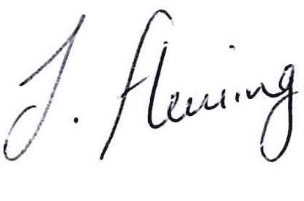 J. Fleming